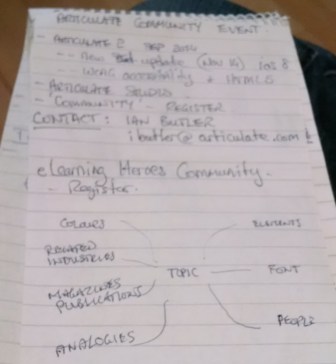 ARTICULATE COMMUNITY EVENT.
- ARTICULATE 2 SEP 2014
-- New update (Nov 14) IOS 8
-- WCAG accessibility + HTML5
- ARTICULATE STUDIO
- COMMUNITY REGISTER
CONTACT: IAN BUTLER
ibutler@articulate.com
eLearning Heroes Community.
- Register.
COLOURS
ELEMENTS
RELATED
INDUSTRIES
TOPIC
FONT
MAGAZINES
PUBLICATIONS
PEOPLE
ANALOGIES